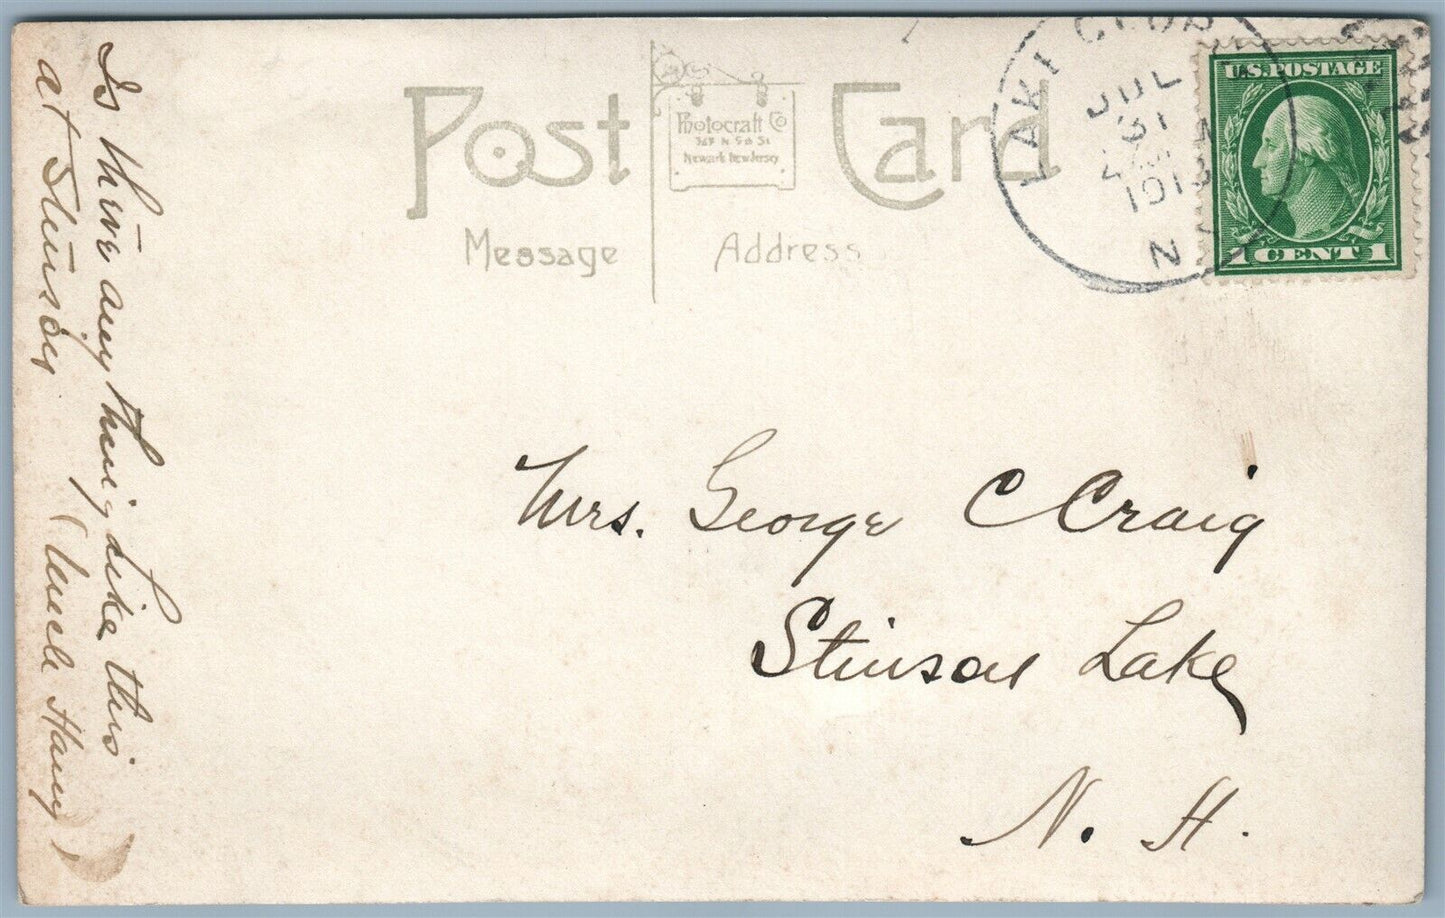 Post Card
Photocraft Co
367 N 5th St
Newark New Jersey
Message
Address
JUL
31
1913
N.Y.
U.S. POSTAGE
1 CENT 1
Is there any thing Like this
at Stinson
(Uncle Harry)
Mrs. George C Craig
Stinson Lake
N. H.